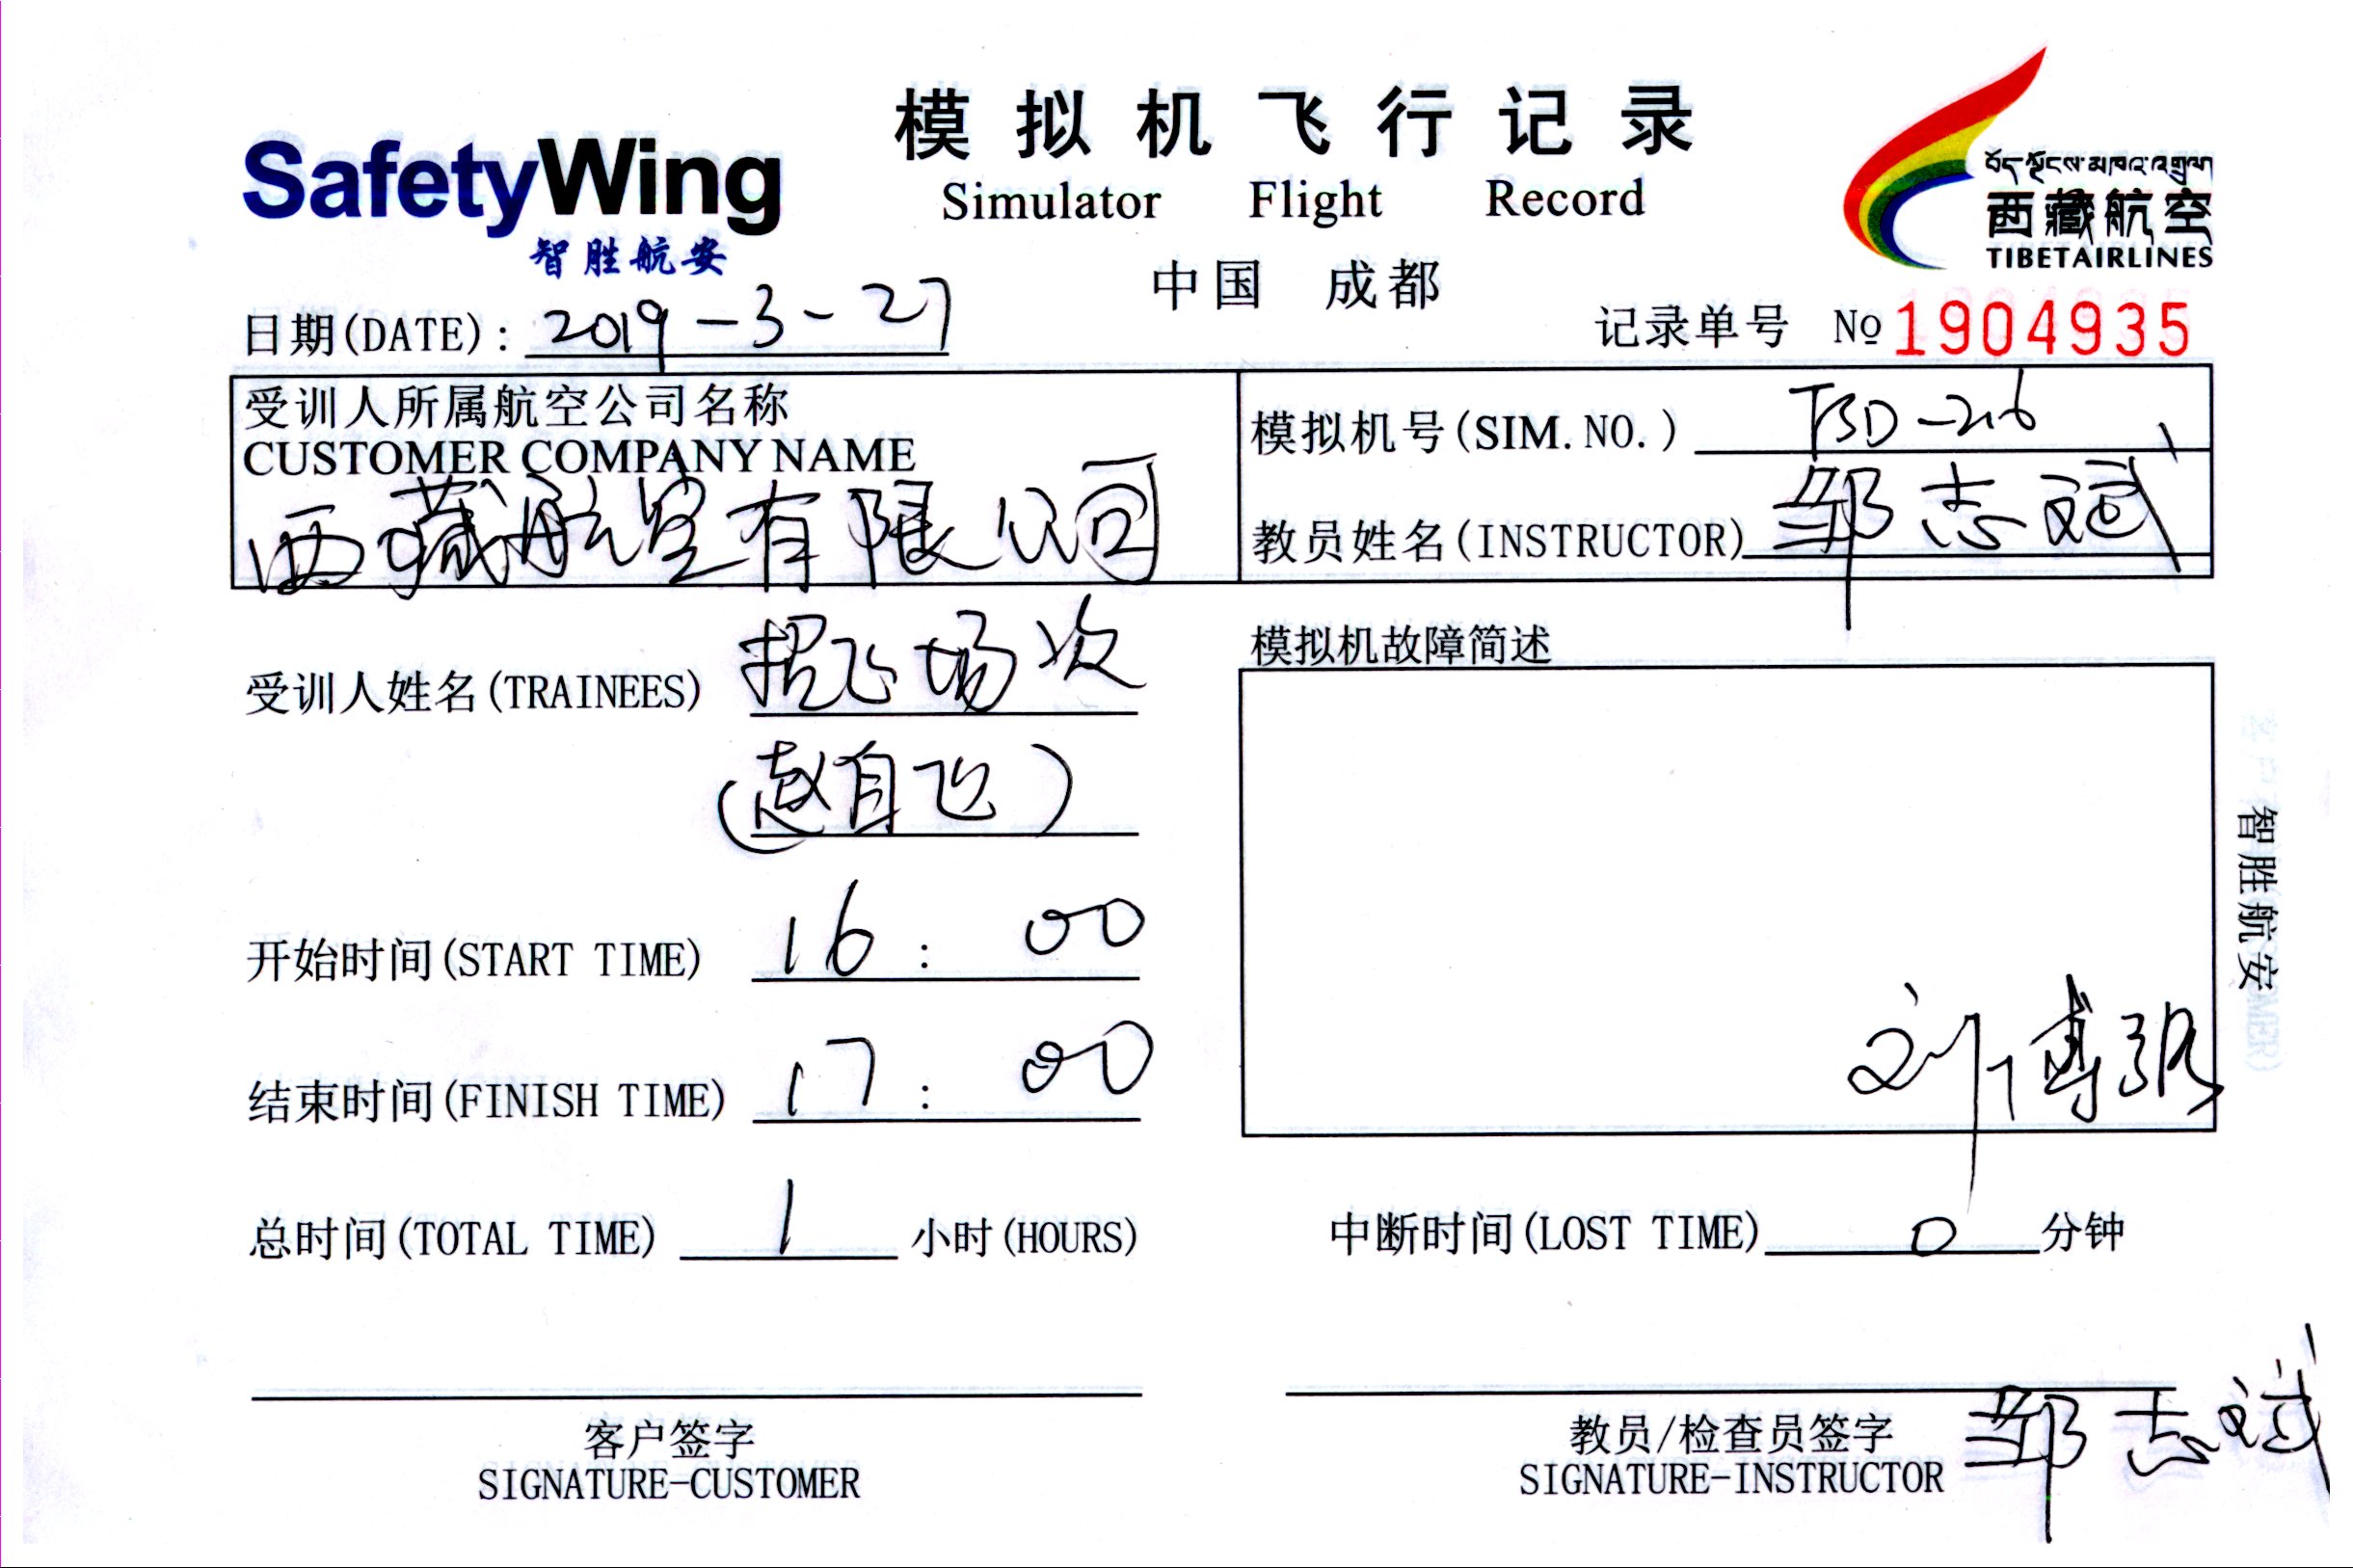 SafetyWing
智胜航安
模拟机飞行记录
Simulator Flight Record
中国 成都
བོད་ལྗོངས་མཁའ་འགྲུལ
西藏航空
TIBETAIRLINES
日期(DATE): 2019-3-27
记录单号 № 1904935
受训人所属航空公司名称
CUSTOMER COMPANY NAME
西藏航空有限公司
模拟机号(SIM.NO.)
教员姓名(INSTRUCTOR) 邹志斌
受训人姓名(TRAINEES) 招飞场次
(赵自飞)
模拟机故障简述
开始时间(START TIME) 16:00
结束时间(FINISH TIME) 17:00
总时间(TOTAL TIME) 1 小时(HOURS)
刘博
中断时间(LOST TIME) 0 分钟
客户签字
SIGNATURE-CUSTOMER
教员/检查员签字 邹志斌
SIGNATURE-INSTRUCTOR
智胜航安